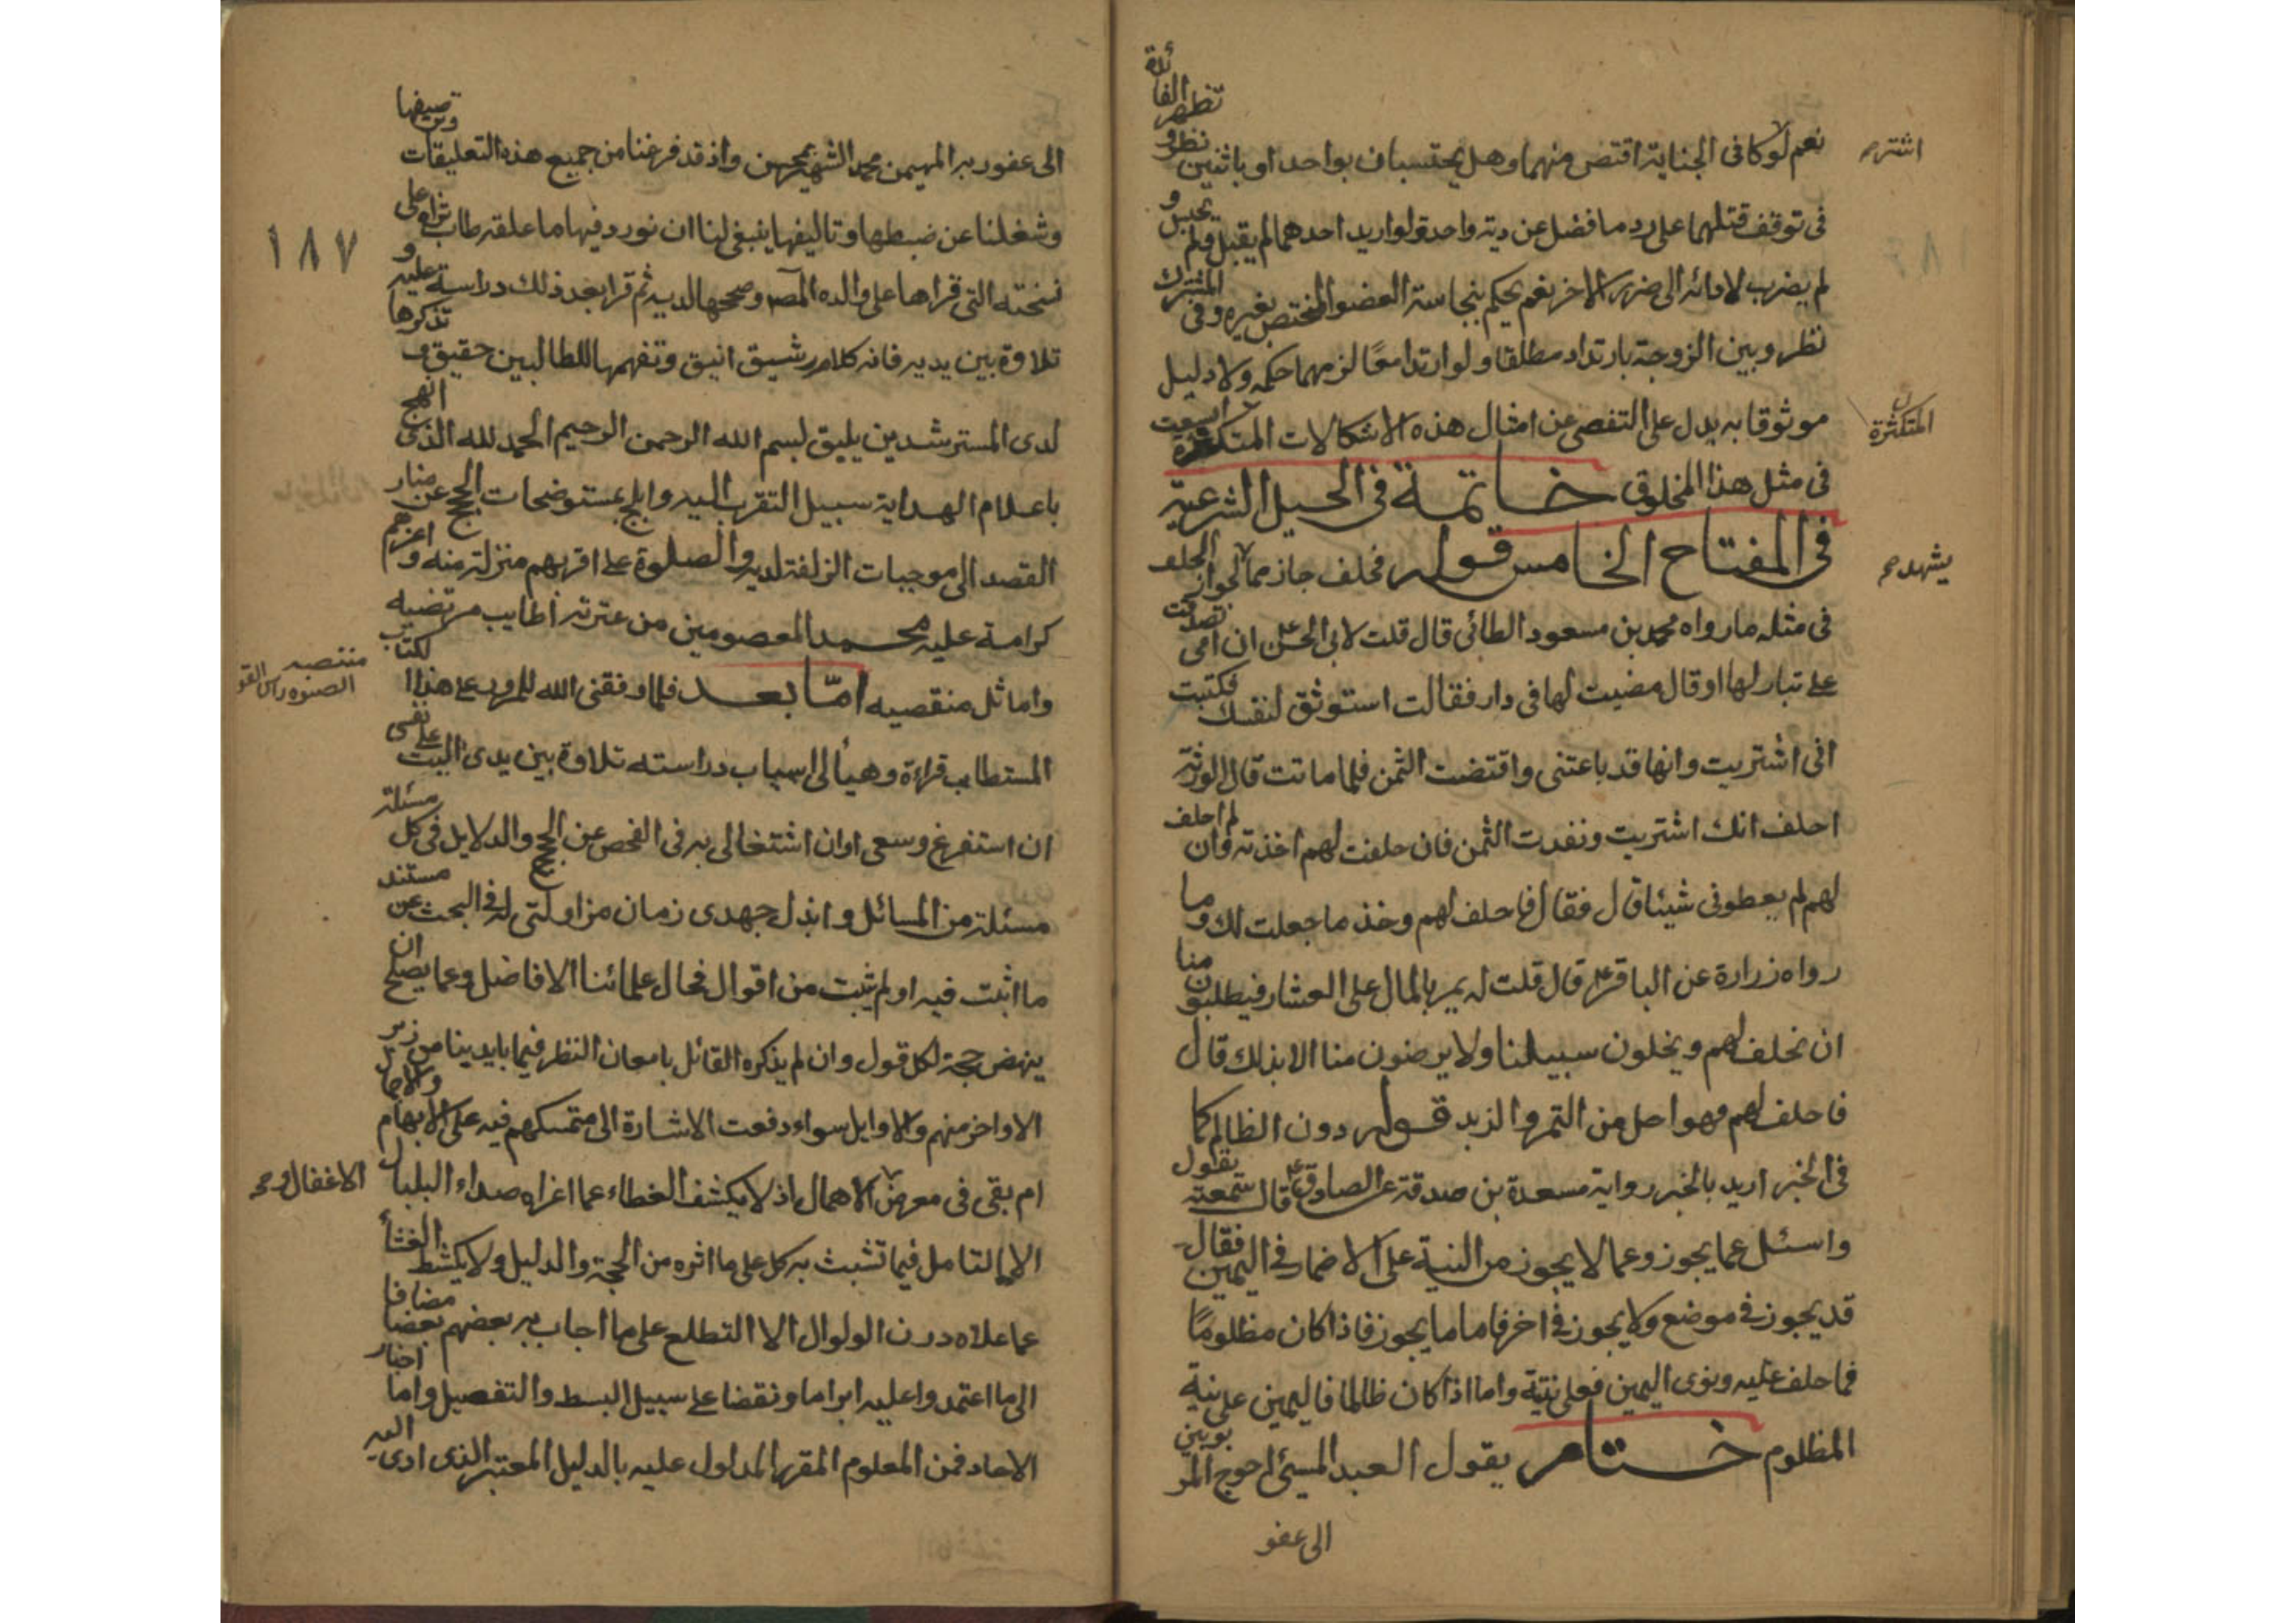 نعم لو كا فى الجناية اقتص منهما وهل يحتسبان بواحد او باثنين نظر و تظهر الفائدة
اشتر صح
فى توقف قتلهما على رد ما فضل عن دية واحدة ولو اريد احدهما لم يقبل ولم يحبس و
لم يضرب لادائه الى ضرر الاخر نعم يحكم بنجاسة العضو المختص بغيره وفى المشترك
نظر وبين الزوجة بارتداد مطلقا ولو ارتدا معًا لزمهما حكمه ولا دليل
موثوقا به يدل على التفصى عن امثال هذه الاشكالات المتكثرة
المتكثرة
فى مثل هذا المخلوق خاتمة فى الحيل الشرعية
فى المفتاح الخامس قوله فحلف جاز مما لجواز الحلف
يشهد صح
فى مثله ما رواه محمد بن مسعود الطائى قال قلت لابى الحسن ع ان امى تصدقت
على بدار لها او قال مضيت لها فى دار فقالت استوثق لنفسك فكتبت
انى اشتريت وانها قد باعتنى واقتضت الثمن فلما ماتت قال الورثة
احلف انك اشتريت ونفدت الثمن فان حلفت لهم اخذته وان لم احلف
لهم لم يعطونى شيئا قال فقال فاحلف لهم وخذ ما جعلت لك وما
رواه زرارة عن الباقر ع قال قلت له يمر بالمال على العشار فيطلبون منا
ان نحلف لهم ويخلون سبيلنا ولا يرضون منا الا بذلك قال
فاحلف لهم وهو احل من التمر والزبد قوله دون الظالم كما
فى الخبر اريد بالخبر رواية مسعدة بن صدقة عن الصادق ع قال سمعته يقول
واسئل عما يجوز وعما لا يجوز من النية على الاضمار فى اليمين فقال
قد يجوز فى موضع ولا يجوز فى اخر فاما ما يجوز فاذا كان مظلومًا
فما حلف عليه ونوى اليمين فعلى نيته واما اذا كان ظالما فاليمين على نية
المظلوم ختام يقول العبد المسئ احوج المربوبين
الى عفو
الى عفو ربه المهيمن محمد الشهير بمحسن واذ قد فرغنا من جميع هذه التعليقات وترصيفها
وشغلنا عن ضبطها وتاليفها ينبغى لنا ان نورد فيها ما علقه طاب ثراه على
١٨٧
نسخته التى قراها على والده المصـ وصححها لديه ثم قرا بعد ذلك دراسة عليه و
تلاوة بين يديه فانه كلام رشيق انيق وتفهمها للطالبين حقيق و تذكرها
لدى المسترشدين يليق بسم الله الرحمن الرحيم الحمد لله الذى انهج
باعلام الهداية سبيل التقرب اليه وابلج بمستوضحات الحجج عن منار
القصد الى موجبات الزلفة لديه والصلوة على اقربهم منزلة منه و اعزهم
كرامة عليه محمد المعصومين من عترته اطايب مرتضيه
واماثل منقصيه امّا بعد فلما وفقنى الله للمرور على هذا الكتاب
منتصيه
المستطاب قراءة وهيأ لى اسباب دراسته تلاوة بين يدى اليت على نفسى
ان استفرغ وسعى اوان اشتغالى به فى الفحص عن الحجج والدلايل فى كل مسئلة
مسئلة من المسائل وابذل جهدى زمان مزاولتى له فى البحث عن مستند
ما اثبت فيه او لم يثبت من اقوال فحال علمائنا الافاضل وعما يصلح ان
ينهض حجة لكل قول وان لم يذكره القائل بامعان النظر فيما بايدينا من زبر
الاواخر منهم والاوايل سواء دفعت الاشارة الى متمسكهم فيه على الابهام والاجمال
ام بقى فى معرض الاهمال اذ لا يكشف الغطاء عما اغراه صداء البلبال
الاغفال و صح
الا التامل فيما تشبث به كل على ما اثره من الحجة والدليل ولا يكشط الغشا
عما علاه درن الولوال الا التطلع على ما اجاب به بعضهم بعضا مضافا
الى ما اعتمدوا عليه ابراما ونقضا على سبيل البسط والتفصيل واما اخبار
الاحاد فمن المعلوم المقرر المدلول عليه بالدليل المعتبر الذى ادى اليه